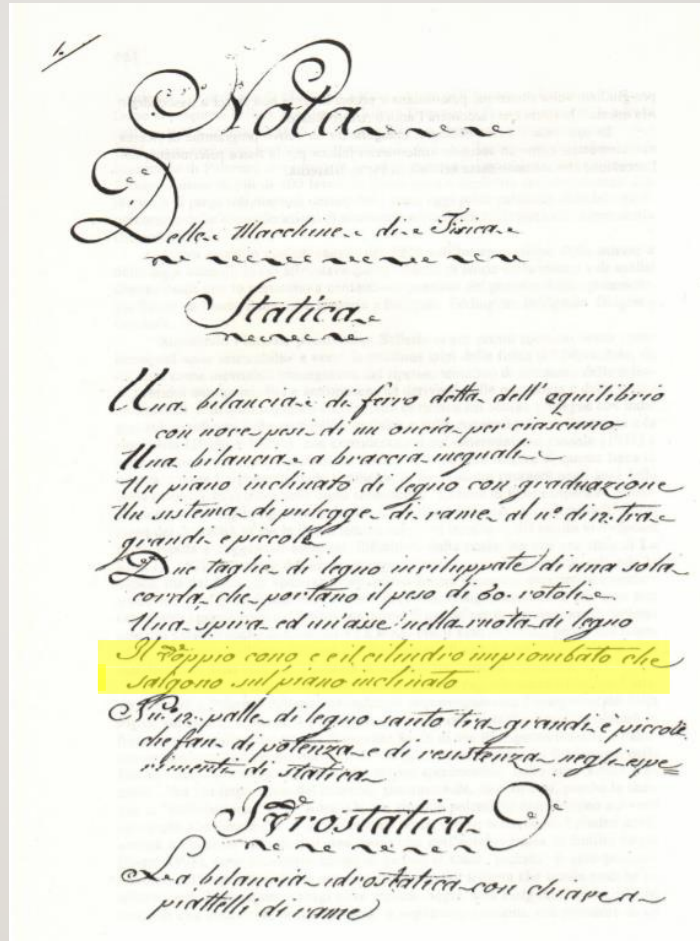 1.
Nota
Delle Macchine di Fisica
Statica
Una bilancia di ferro detta dell'equilibrio
con nove pesi di un oncia per ciascuno
Una bilancia a braccia ineguali
Un piano inclinato di legno con graduazione
Un sistema di pulegge di rame al n.º di 12. tra
grandi e piccole
Due taglie di legno inviluppate di una sola
corda che portano il peso di 60. rotoli
Una spira ed un'asse nella ruota di legno
Il doppio cono e il cilindro impiombato che
salgono sul piano inclinato
Nu.º 12. palle di legno santo tra grandi è piccole
che fan di potenza e di resistenza negli espe=
rimenti di statica
Idrostatica
La bilancia idrostatica con due
piattelli di rame